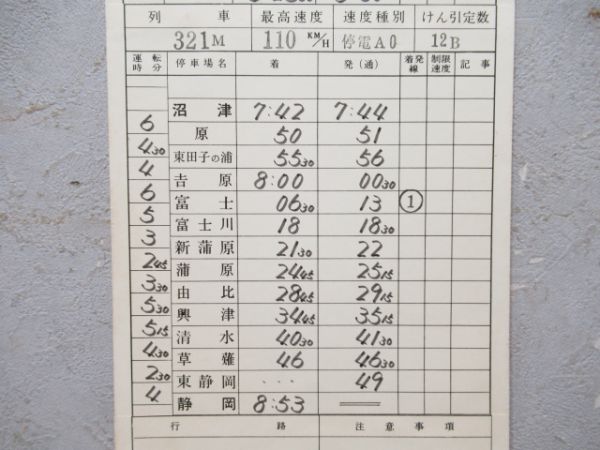 列 車 最高速度 速度種別 けん引定数
321M 110 KM/H 停電A0 12B
運転時分 停車場名 着 発(通) 着発線 制限速度 記事
沼津 7:42 7:44
6
原 50 51
4 30
東田子の浦 55 30 56
4
吉原 8:00 00 30
6
富士 06 30 13 ①
5
富士川 18 18 30
3
新蒲原 21 30 22
2 45
蒲原 24 45 25 15
3 30
由比 28 45 29 15
5 30
興津 34 45 35 15
5 15
清水 40 30 41 30
4 30
草薙 46 46 30
2 30
東静岡 ... 49
4
静岡 8:53
行 路 注 意 事 項